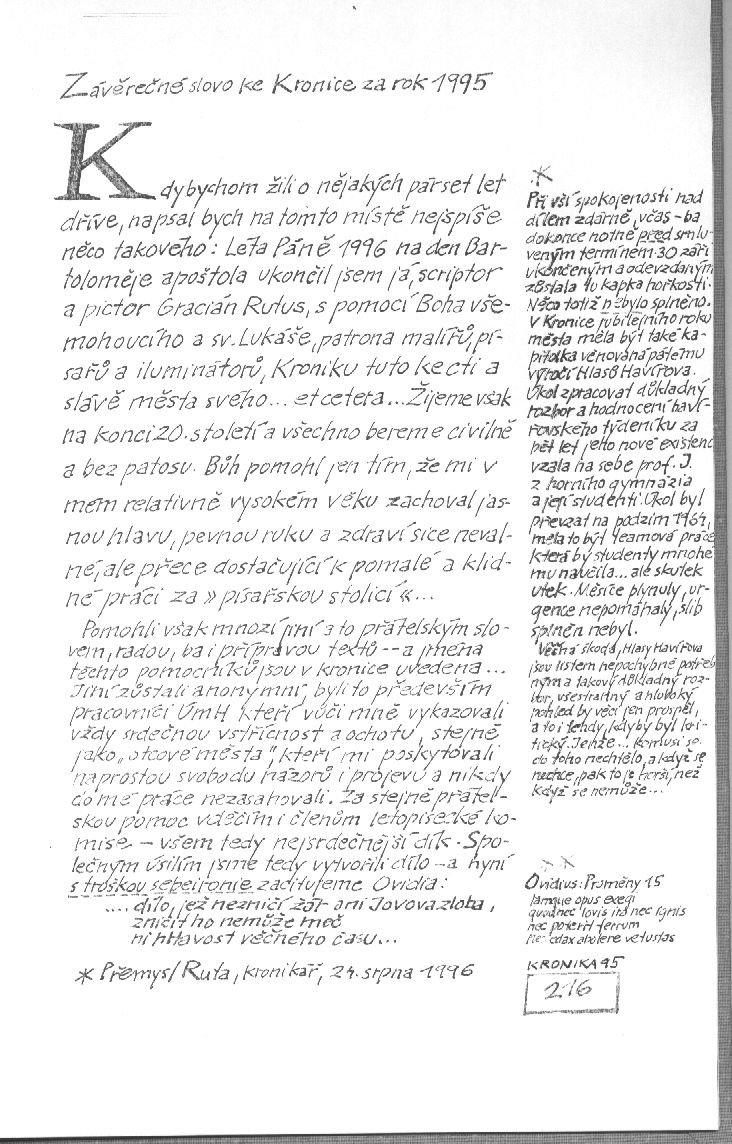 Závěrečné slovo ke Kronice za rok 1995
Kdybychom žili o nějakých pár set let
dříve, napsal bych na tomto místě nejspíše
něco takového: Léta Páně 1996 na den Bar-
toloměje apoštola ukončil jsem já, scriptor
a pictor Gracián Rufus, s pomocí Boha vše-
mohoucího a sv. Lukáše, patrona malířů, pí-
sařů a iluminátorů, Kroniku tuto ke cti a
slávě města svého... et cetera... Žijeme však
na konci 20. století a všechno bereme civilně
a bez patosu. Bůh pomohl jen tím, že mi v
mém relativně vysokém věku zachoval jas-
nou hlavu, pevnou ruku a zdraví sice neval-
né, ale přece dostačující k pomalé a klid-
né práci za » písařskou stolicí «...
Pomohli však mnozí jiní a to přátelským slo-
vem, radou, ba i přípravou textů -- a jména
těchto pomocníků jsou v kronice uvedena...
Jiní zůstali anonymní, byli to především
pracovníci ÚmH kteří vůči mně vykazovali
vždy srdečnou vstřícnost a ochotu, stejně
jako „otcové města", kteří mi poskytovali
naprostou svobodu názorů i projevu a nikdy
do mé práce nezasahovali. Za stejně přátel-
skou pomoc vděčím i členům letopisecké ko-
mise – všem tedy nejsrdečnější dík. Spo-
lečným úsilím jsme tedy vytvořili dílo – a nyní
s troškou sebeironie zacitujeme Ovidia:
.... dílo, jež nezničí žár ani Jovova zloba,
zničit ho nemůže meč
ni hltavost věčného času...
* Přemysl Ruta, kronikář, 24. srpna 1996
*
Při vší spokojenosti nad
dílem zdárně, včas – ba
dokonce notně před smlu-
veným termínem 30 září
ukončeným a odevzdaným
zůstala tu kapka hořkosti.
Něco totiž nebylo splněno.
V Kronice jubilejního roku
města měla být také ka-
pitolka věnovaná pátému
výročí Hlasů Havířova.
Úkol zpracovat důkladný
rozbor a hodnocení haví-
řovského týdeníku za
pět let jeho nové existenc
vzala na sebe prof. J.
z horního gymnázia
a její studenti. Úkol byl
převzat na podzim 1964,
měla to být teamová práce
která by studenty mnohé
mu naučila... ale skutek
utek. Měsíce plynuly, ur-
gence nepomáhaly, slib
splněn nebyl.
Věčná škoda, Hlasy Havířova
jsou listem nepochybně potřeb
ným a takový důkladný roz-
bor, všestranný a hluboký
pohled by věci jen prospěl,
a to i tehdy, kdyby byl kri-
tický. Jenže... komusi se
do toho nechtělo, a když se
nechce, pak to je horší, než
když se nemůže...
* *
Ovidius: Proměny 15
Iamque opus exegi
quod nec Iovis ira nec ignis
nec poterit ferrum
nec edax abolere vetustas
KRONIKA 95
216